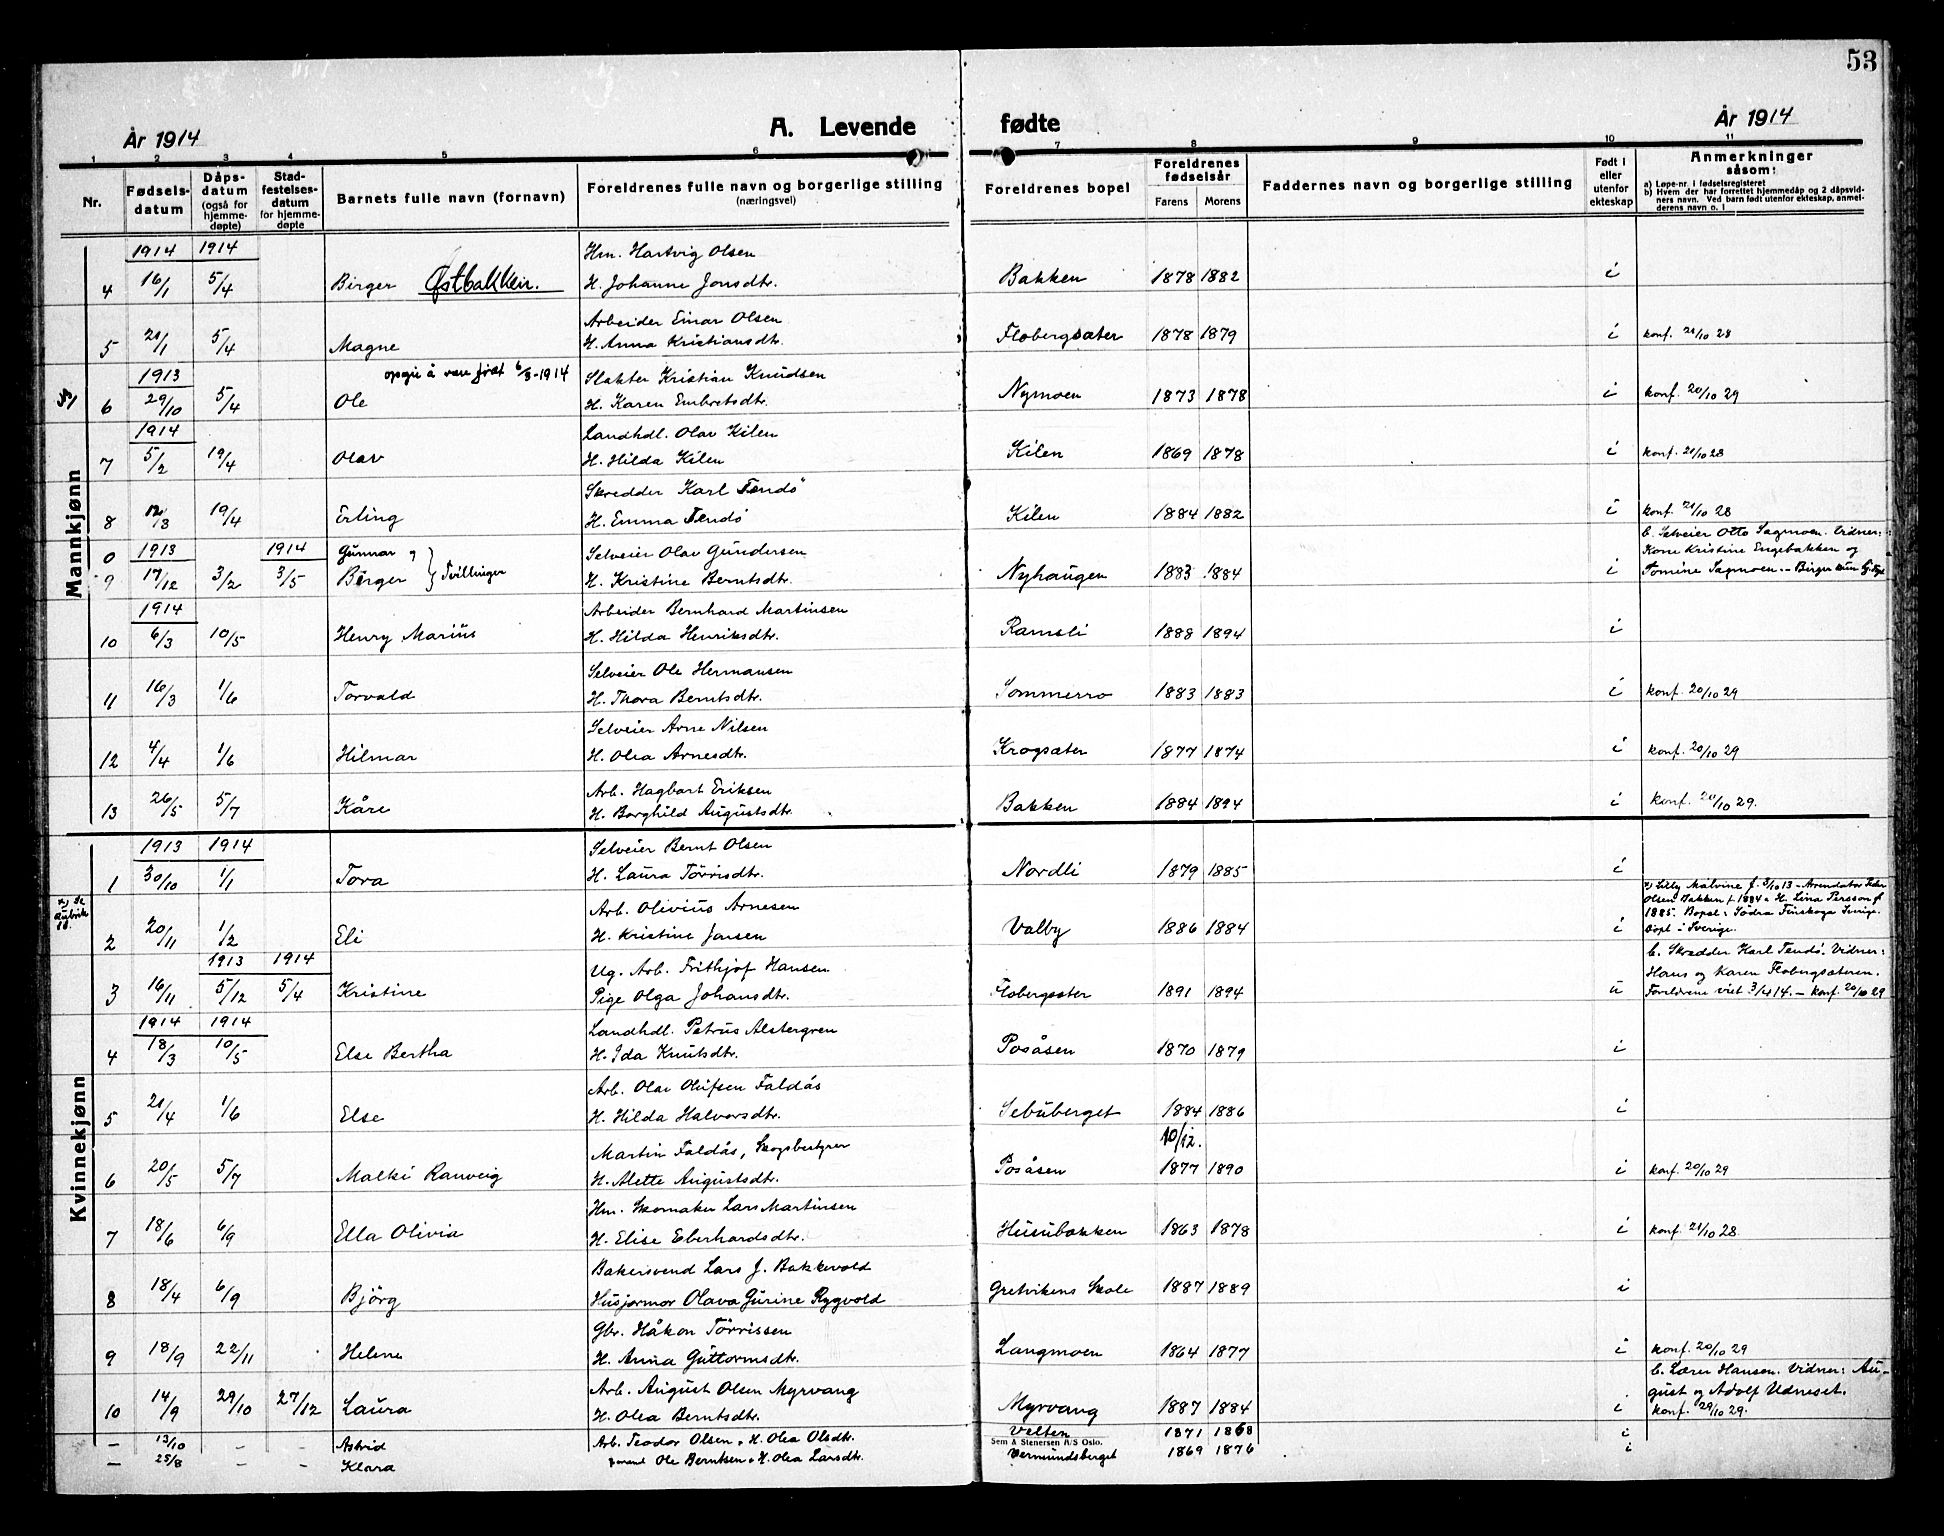 53
År 1914
A. Levende fødte
År 1914
1 2 3 4 5 6 7 8 9 10 11
Nr.
Fødsels-
datum
Dåps-
datum
(også for
hjemme-
døpte)
Stad-
festelses-
datum
for hjemme-
døpte
Barnets fulle navn (fornavn)
Foreldrenes fulle navn og borgerlige stilling
(næringsvei)
Foreldrenes bopel
Foreldrenes
fødselsår
Farens Morens
Faddernes navn og borgerlige stilling
Født i
eller
utenfor
ekteskap
Anmerkninger
såsom:
a) Løpe-nr. i fødselsregisteret
b) Hvem der har forrettet hjemmedåp og 2 dåpsvid-
ners navn. Ved barn født utenfor ekteskap, anmel-
derens navn o. l
Mannkjønn
1914 1914 Hm. Hartvig Olsen
4 16/1 5/4 Birger Østbakken. H. Johanne Jonsdtr. Bakken 1878 1882 i
Arbeider Einar Olsen
5 21/1 5/4 Magne H. Anna Kristiansdtr. Flobergsæter 1878 1879 i konf. 21/10 28
1913 opgir å være født 6/3-1914 Slakter Kristian Knudsen
6 29/10 5/4 Ole H. Karen Embretsdtr. Nymoen 1873 1878 i konf. 20/10 29
1914 Landhdl. Olav Kilen
7 5/2 19/4 Olav H. Hilda Kilen Kilen 1869 1878 i konf. 21/10 28
Skredder Karl Tendö
8 12/3 19/4 Erling H. Emma Tendö Kilen 1884 1882 i konf. 21/10 28
b. Selveier Otto Sagmoen. Vidner:
0 1913 1914 Gunnar Selveier Olav Gundersen Kone Kristine Engebakken og
9 17/12 3/2 3/5 Birger } Tvillinger H. Kristine Berntsdtr. Nyhaugen 1883 1884 i Tomine Sagmoen. - Birger
1914 Arbeider Bernhard Martinsen
10 6/3 10/5 Henry Marius H. Hilda Henriksdtr. Ramsli 1888 1894 i
Selveier Ole Hermansen
11 16/3 1/6 Torvald H. Thora Berntsdtr. Sommerro 1883 1883 i konf. 20/10 29
Selveier Arne Nilsen
12 4/4 1/6 Hilmar H. Olea Arnesdtr. Krogsæter 1877 1874 i konf. 20/10 29
Arb. Hagbart Eriksen
13 26/5 5/7 Kåre H. Borghild Augustsdtr. Bakken 1884 1894 i konf. 20/10 29.
Kvinnekjønn
1913 1914 Selveier Bernt Olsen
1 30/10 1/1 Tora H. Laura Törrisdtr. Nordli 1879 1885 i
x) Lilly Malvine f. 3/10 13 - Arendator Peder
Olsen Bakken f. 1884 & H. Lina Persson f
Arb. Olivius Arnesen 1885. Bopel: Södra Finskoga Sverige.
2 20/11 1/2 Eli H. Kristine Jansen Valby 1886 1884 i Döpt i Sverige.
b. Skredder Karl Tendö. Vidner:
1913 1914 Ug. Arb. Frithjof Hansen Hans og Karen Flobergsæteren.
3 16/11 5/12 5/4 Kristine Pige Olga Johansdtr. Flobergsæter 1891 1894 u Foreldrene viet 3/4 14. - konf. 20/10 29
1914 1914 Landhdl. Petrus Alstergren
4 18/3 10/5 Else Bertha H. Ida Knutsdtr. Posåsen 1870 1879 i
Arb. Olav Olufsen Faldås
5 21/4 1/6 Else H. Hilda Halvorsdtr. Sebuberget 1884 1886 i
Martin Faldås, Skogsbestyrer 10/12.
6 20/5 5/7 Malki Ranveig H. Alette Augustsdtr. Posåsen 1877 1890 i konf. 20/10 29
Hm. Skomaker Lars Martinsen
7 18/6 6/9 Ella Olivia H. Elise Eberhardsdtr. Husubakken 1863 1878 i konf. 21/10 28.
Bakersvend Lars J. Bakkevold
8 18/4 6/9 Bjørg Husjormor Olava Gurine Rygvold Gretvikens Skole 1887 1889 i
Gbr. Håkon Törrissen
9 18/9 22/11 Helene H. Anna Guttormsdtr. Langmoen 1864 1877 i konf. 20/10 29
b. Lærer Hansen. Vidner: Au-
Arb. August Olsen Myrvang gust og Adolf Udneset.
10 14/9 29/10 27/12 Laura H. Olea Berntsdtr. Myrvang 1887 1884 i konf. 29/10 29.
— 13/10 - - Astrid Arb. Teodor Olsen & H. Olea Olsdtr. Velten 1871 1868 i
Sem & Stenersen A/S Oslo.
— 25/8 - - Klara Ole Berntsen & H. Olea Larsdtr. Vermundsberget 1869 1876 i